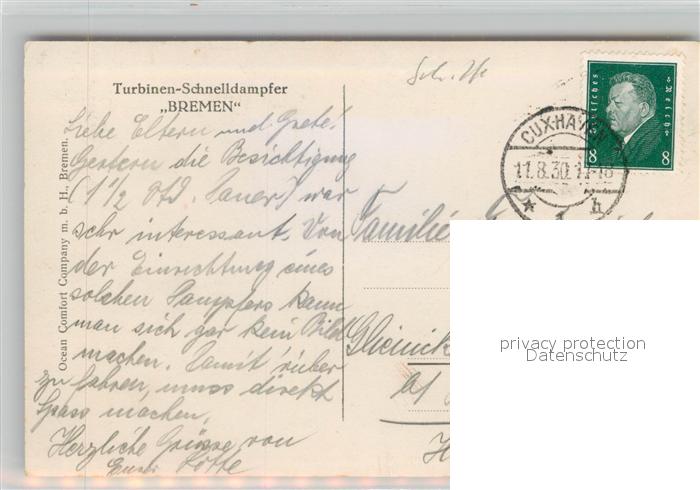 Turbinen-Schnelldampfer
„BREMEN“
Liebe Eltern und Grete!
Gestern die Besichtigung
(1 1/2 Std. Dauer) war
sehr interessant. Von
der Einrichtung eines
solchen Dampfers kann
man sich gar kein Bild
machen. Damit rüber
zu fahren, muss direkt
Spass machen.
Herzliche Grüsse von
Eurer Lotte
Ocean Comfort Company m. b. H., Bremen.
Deutsches Reich
8 8
CUXHAVEN
11.8.30.
* h
Familie
privacy protection
Datenschutz